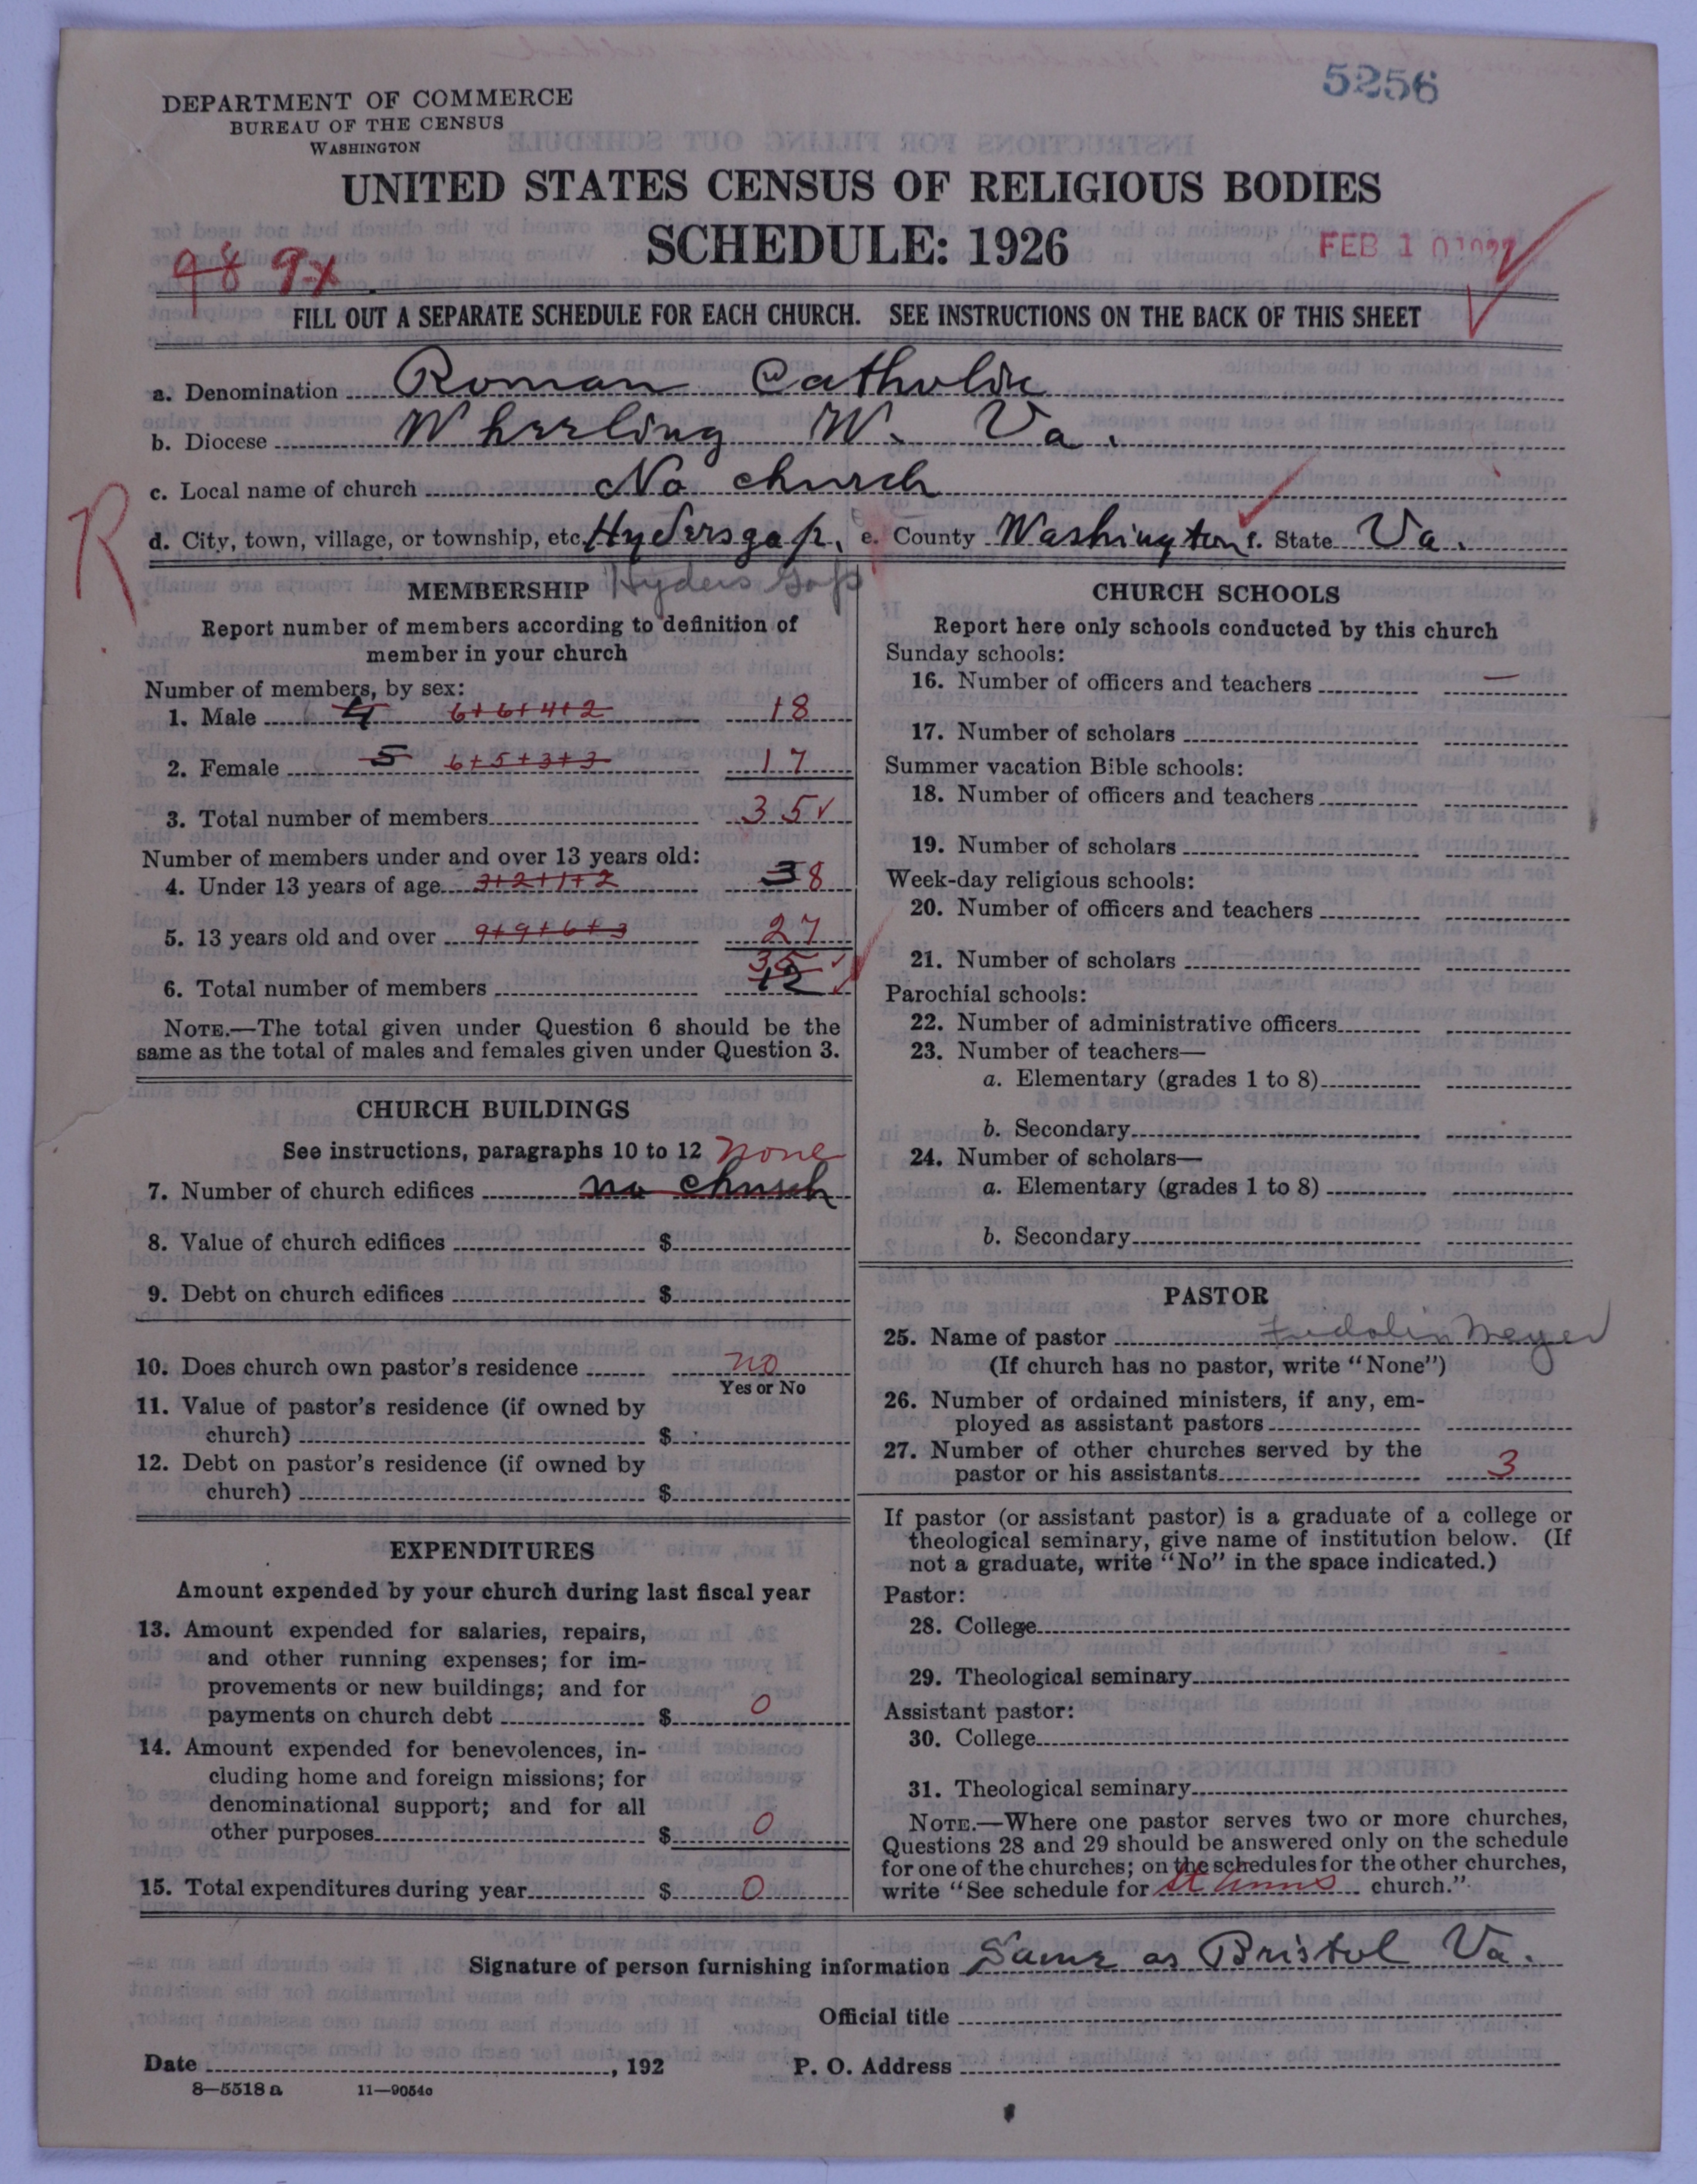 5256
DEPARTMENT OF COMMERCE
BUREAU OF THE CENSUS
WASHINGTON
UNITED STATES CENSUS OF RELIGIOUS BODIES
SCHEDULE: 1926
FEB 10 1927
98 9x
FILL OUT A SEPARATE SCHEDULE FOR EACH CHURCH. SEE INSTRUCTIONS ON THE BACK OF THIS SHEET
a. Denomination Roman Catholic
b. Diocese Wheeling W. Va.
c. Local name of church No church
R
d. City, town, village, or township, etc. Hydersgap. e. County Washington f. State Va.
Hyders Gap
MEMBERSHIP
Report number of members according to definition of
member in your church
Number of members, by sex:
1. Male 4 6+6+4+2 18
2. Female 5 6+5+3+3 17
3. Total number of members 35 ✓
Number of members under and over 13 years old:
4. Under 13 years of age 3+2+1+2 3 8
5. 13 years old and over 9+9+6+3 27
35 ✓
6. Total number of members 12 ✓
NOTE.—The total given under Question 6 should be the
same as the total of males and females given under Question 3.
CHURCH BUILDINGS
See instructions, paragraphs 10 to 12 none
7. Number of church edifices no church
8. Value of church edifices $
9. Debt on church edifices $
10. Does church own pastor's residence no
Yes or No
11. Value of pastor's residence (if owned by
church) $
12. Debt on pastor's residence (if owned by
church) $
EXPENDITURES
Amount expended by your church during last fiscal year
13. Amount expended for salaries, repairs,
and other running expenses; for im-
provements or new buildings; and for
payments on church debt $ 0
14. Amount expended for benevolences, in-
cluding home and foreign missions; for
denominational support; and for all
other purposes $ 0
15. Total expenditures during year $ 0
CHURCH SCHOOLS
Report here only schools conducted by this church
Sunday schools:
16. Number of officers and teachers —
17. Number of scholars
Summer vacation Bible schools:
18. Number of officers and teachers
19. Number of scholars
Week-day religious schools:
20. Number of officers and teachers
21. Number of scholars
Parochial schools:
22. Number of administrative officers
23. Number of teachers—
a. Elementary (grades 1 to 8)
b. Secondary
24. Number of scholars—
a. Elementary (grades 1 to 8)
b. Secondary
PASTOR
25. Name of pastor Fridolin Meyer
(If church has no pastor, write "None")
26. Number of ordained ministers, if any, em-
ployed as assistant pastors
27. Number of other churches served by the
pastor or his assistants 3
If pastor (or assistant pastor) is a graduate of a college or
theological seminary, give name of institution below. (If
not a graduate, write "No" in the space indicated.)
Pastor:
28. College
29. Theological seminary
Assistant pastor:
30. College
31. Theological seminary
NOTE.—Where one pastor serves two or more churches,
Questions 28 and 29 should be answered only on the schedule
for one of the churches; on the schedules for the other churches,
write "See schedule for St Anns church."
Signature of person furnishing information Same as Bristol Va.
Official title
Date , 192 P. O. Address
8—5518 a 11—9054c